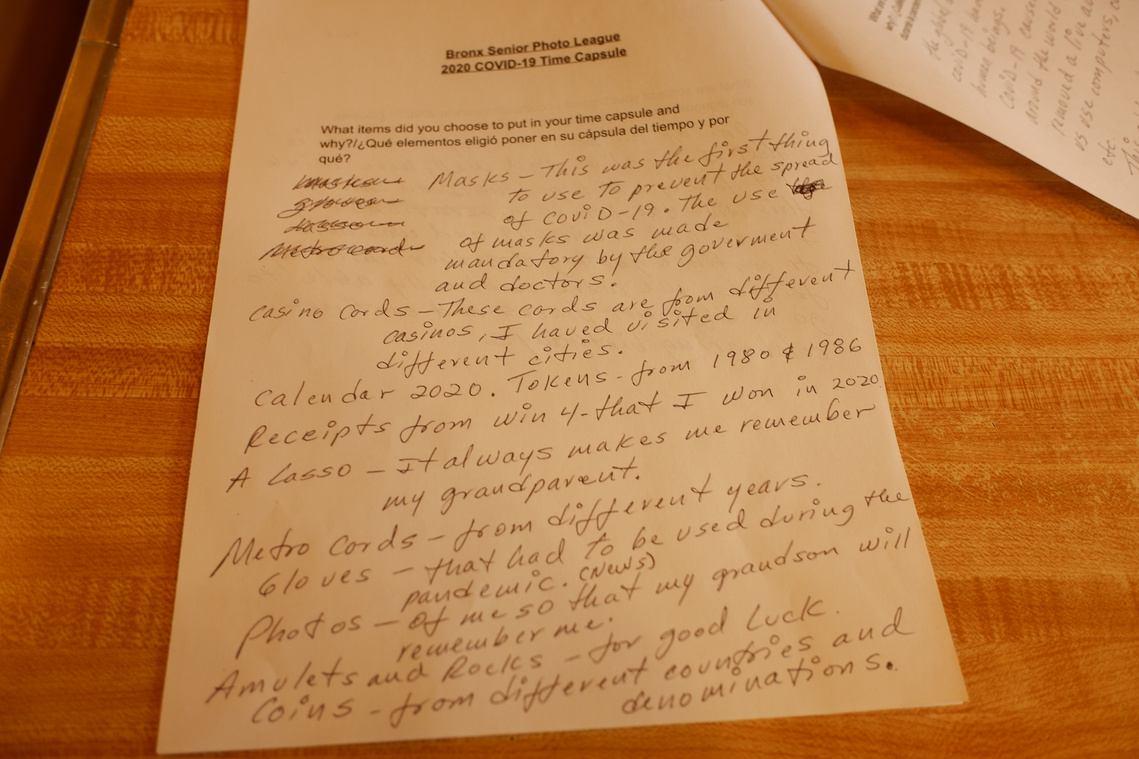 Bronx Senior Photo League
2020 COVID-19 Time Capsule
What items did you choose to put in your time capsule and
why?/¿Qué elementos eligió poner en su cápsula del tiempo y por
qué?
Masks - This was the first thing
to use to prevent the spread
of coviD-19. The use
of masks was made
mandatory by the goverment
and doctors.
Metrocards
casino cards - These cards are from different
casinos, I haved visited in
different cities.
Calendar 2020. Tokens - from 1980 & 1986
Receipts from win 4 - that I won in 2020
A Lasso - It always makes me remember
my grandparent.
Metro Cards - from different years.
Gloves - that had to be used during the
pandemic. (News)
Photos - of me so that my grandson will
remember me.
Amulets and Rocks - for good luck.
Coins - from different countries and
denominations.
covid-19
human beings.
Covid-19 caused
around the world
us use computers,
etc.